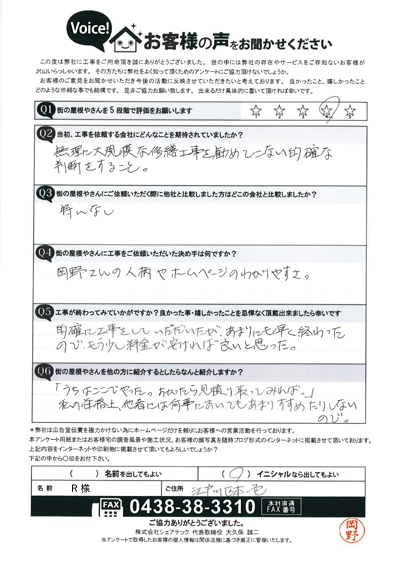 Voice!
お客様の声をお聞かせください
この度は弊社に工事をご用命頂き誠にありがとうございました。世の中には弊社の存在やサービスをご存知ないお客様が
沢山いらっしゃいます。その方たちに弊社をよく知って頂くためのアンケートにご協力頂けないでしょうか。
お客様のご意見をお聞かせいただき今後の活動に反映させていただきたいと考えております。良かったこと、嬉しかったこと
どのような些細な事でも結構です。是非ご協力お願い致します。出来るだけ具体的に書いて頂ければ幸いです。
Q1 街の屋根やさんを5段階で評価をお願いします
☆ ☆ ☆ ☆ ☆
Q2 当初、工事を依頼する会社にどんなことを期待されていましたか?
無理に大規模な修繕工事を勧めてこない的確な
判断をすること。
Q3 街の屋根やさんにご依頼いただく際に他社と比較しました方はどこの会社と比較しましたか?
特になし
Q4 街の屋根やさんに工事をご依頼いただいた決め手は何ですか?
岡野さんの人柄やホームページのわかりやすさ。
Q5 工事が終わってみていかがですか?良かった事・嬉しかったことを忌憚なく頂戴出来ましたら幸いです
的確に工事をしていただいたが、あまりにも早く終わった
ので、もう少し料金が安ければ良いと思った。
Q6 街の屋根やさんを他の方に紹介するとしたらなんと紹介しますか?
「うちはここでやった。よかったら見積り取ってみれば。」
私の性格上、他者には何事においてもあまりすすめたりしない
ので。
*弊社は広告宣伝費を極力かけない為にホームページだけを頼りにお客様への営業活動を行っております。
本アンケート用紙またはお客様宅の調査風景や施工状況、お客様の顔写真を随時ブログ形式のインターネットに掲載させて頂いております。
上記内容をインターネットや印刷物に掲載させて頂いてもよろしいでしょうか?
下記の中から〇印をお付け下さい。
( )名前を出してもよい (〇)イニシャルなら出してもよい
名前 R様 ご住所 江戸川区
FAX 0438-38-3310 本社直通 FAX番号
ご協力ありがとうございました。
株式会社シェアテック 代表取締役 大久保 誠二
※アンケートで取得したお客様の個人情報は関係法規に基づき厳正に管理いたします。
岡野